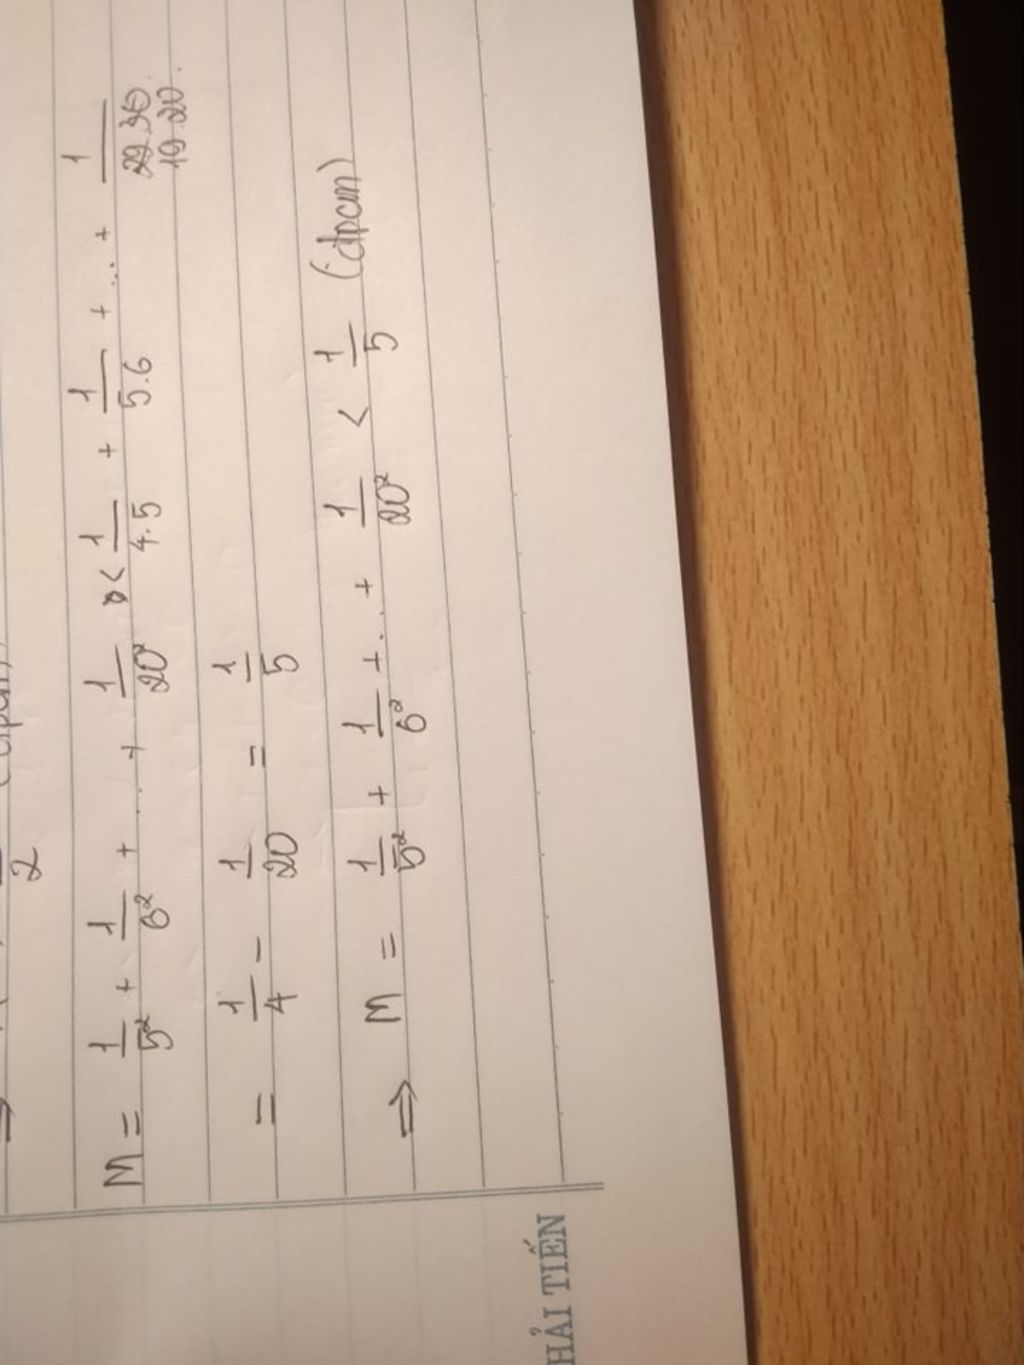 2
M = 1/5² + 1/6² + ... + 1/20² < 1/4.5 + 1/5.6 + ... + 1/19.20
= 1/4 - 1/20 = 1/5
⇒ M = 1/5² + 1/6² + ... + 1/20² < 1/5 (đpcm)
HẢI TIẾN